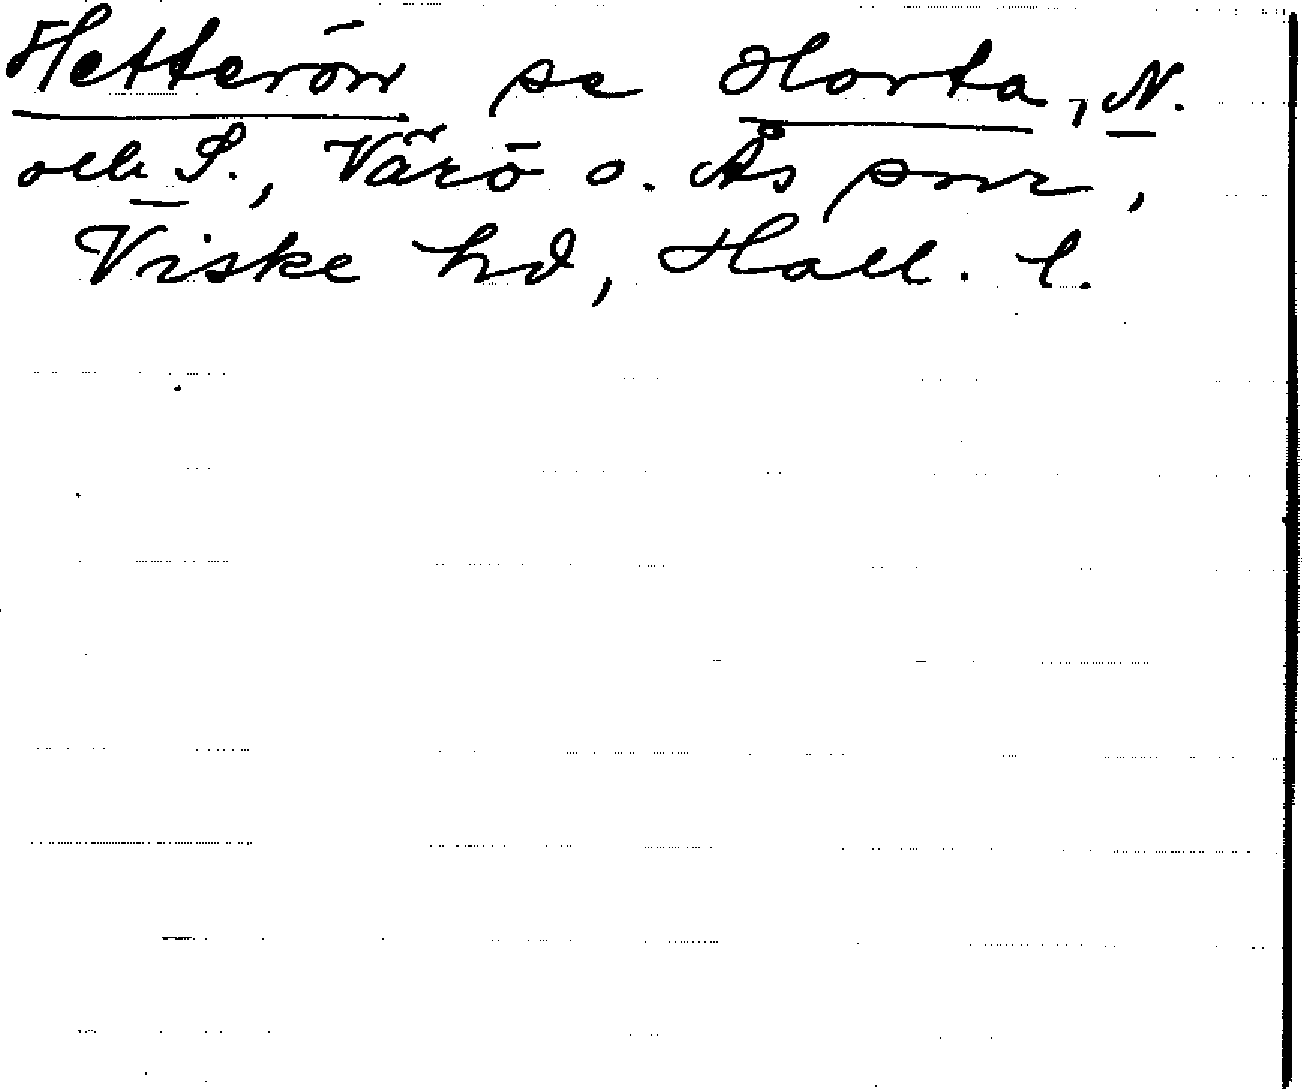 Hetterör se Horta, N.
och S., Värö o. Ås snr,
Viske hd, Hall. l.